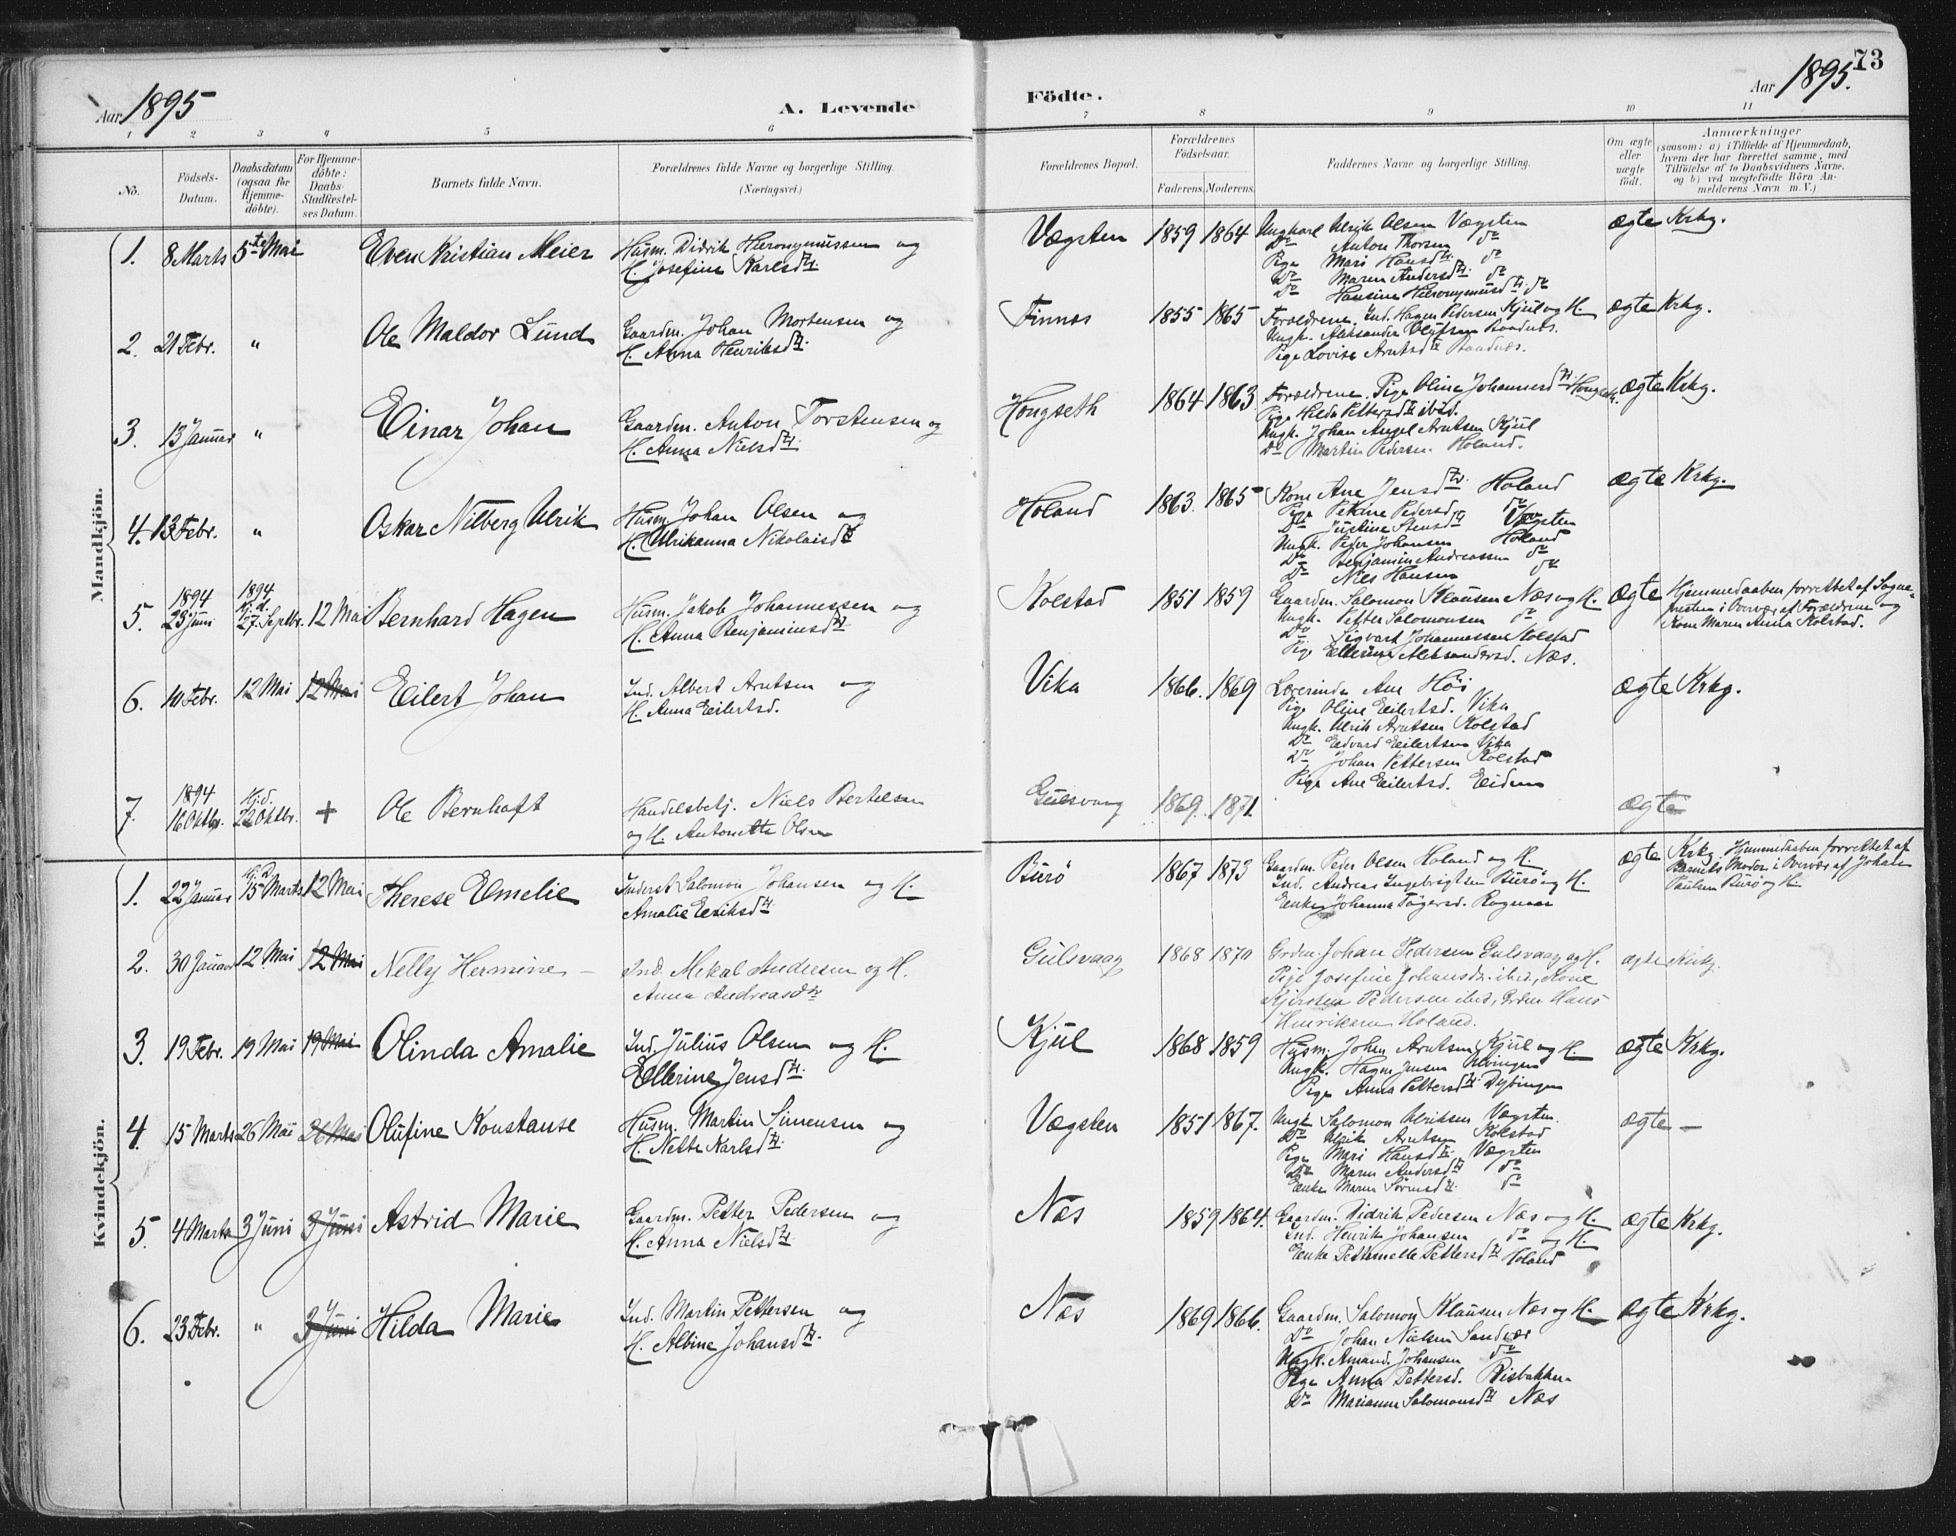 73
Aar 1895
A. Levende
Födte.
Aar 1895.
1 2 3 4 5 6 7 8 9 10 11
No.
Födsels-
Datum.
Daabsdatum
(ogsaa for
Hjemme-
döbte).
For Hjemme-
döbte:
Daabs-
Stadfæstel-
ses Datum.
Barnets fulde Navn.
Forældrenes fulde Navne og borgerlige Stilling.
(Næringsvei.)
Forældrenes Bopæl.
Forældrenes
Födselsaar.
Faderens. Moderens.
Faddernes Navne og borgerlige Stilling.
Om ægte
eller
uægte
födt.
Anmærkninger
(saasom: a) i Tilfælde af Hjemmedaab,
hvem der har forrettet samme, med
Tilföielse af to Daabsvidners Navne,
og b) ved uægtefödte Börn An-
melderens Navn m. V.)
Mandkjön.
1. 8 Marts 5te Mai Even Kristian Meier
Husm. Didrik Hieronymussen og
H. Josefine Karlsdtr.
Vægsten 1859 1864
Ungkarl Ulrik Olsen Vægsten
Do Anton Thorsen do
Pige Mari Hansdtr. do
Do Maren Andersdtr. do
Do Hansine Hieronymusdtr. do
ægte Krkg.
2. 21 Febr. " Ole Maldor Lund
Gaardm. Johan Mortensen og
H. Anna Henriksdtr.
Finnes 1855 1865
Forældrene. Ind. Hagen Pedersen Kjul og H.
Ungk. Aleksander Olufsen
Pige Lovise Arntsdtr
ægte Krkg.
3. 13 Januar " Einar Johan
Gaardm. Anton Torstensen og
H. Anna Nielsdtr.
Hongseth 1864 1863
Forældrene. Pige Oline Johannesdtr. Hongseth.
Pige Hilda Pettersdtr ibid.
Ungk. Johan Angel Arntsen Kjul
Do Martin Pedersen Holand.
ægte Krkg.
4. 13 Febr. " Oskar Nilberg Ulrik
Husm. Johan Olsen og
H. Ulrikanna Nikolaisdtr
Holand 1863. 1865
Kone Ane Jensdtr. Holand
Pige Petrine Pedersdtr do
Do Justine Stensdtr Vægsten
Ungk. Peder Johansen Holand
Do Benjamin Andreassen do
Do Nils Hansen do
ægte Krkg.
5. 1894 25 Juni 1894. Hj.d. 27 Septbr. 12 Mai Bernhard Hagen
Husm. Jakob Johannessen og
H. Anna Benjaminsdtr
Kolstad 1851 1859
Gaardm. Salomon Klausen Næs og H.
Ungk. Petter Salomonsen do
Do Sigvart Johannessen Kolstad
Pige Ellerine Aleksandersd. Næs.
ægte
Hjemmedaaben forrettet af Sogne-
presten i Overvær af Forældrene og
Kone Maren Anna Kolstad.
6. 10 Febr. 12 Mai 12 Mai Eilert Johan
Ind. Albert Arntsen og
H. Anna Eilertsd.
Vika 1866. 1869
Lærerinde Ane Höi
Pige Oline Eilertsd. Vika
Ungk. Ulrik Arntsen Kolstad
Do Edvard Eilertsen Vika
Do Johan Pettersen Kolstad
Pige Ane Eilertsd. Eidem
ægte Krkg.
7. 1894 16 Oktbr. Hj.d. 22 Oktbr. + Ole Bernhoft
Handelsbetj. Niels Bertelsen
og H. Antonette Olsen
Gulsvaag 1869. 1871
ægte
Kvindekjön.
1. 22 Januar Hj.D. 15 Marts 12 Mai Therese Emelie
Inderst Salomon Johansen og H.
Amalie Eriksdtr.
Burö 1867 1873
Gaardm. Peder Olsen Holand og H.
Ind. Andreas Ingebrigtsen Burö og H.
Enke Johanna
ægte
Krkg Hjemmedaaben forrettet af
Barnets Moder i Overvær af Johan
Paulsen Burö og H.
2. 30 Januar 12 Mai 12 Mai Nelly Hermine -
Ind. Mekal Andersen og H.
Anna Andreasdtr
Gulsvaag 1868 1870
Grdm. Johan Pedersen Gulsvaag og H.
Pige Josefine Johansdr. ibid, Kone
Kjersten Pedersen ibid, Grdm Hans
Henriksen Holand.
ægte Kirkg.
3. 19 Febr. 19 Mai 19 Mai Olinda Amalie
Ind. Julius Olsen og H.
Ellerine Jensdtr.
Kjul 1868 1859
Husm. Johan Arntsen Kjul og H.
Ungk. Hagen Jensen
Pige Anna Pettersdtr. Dybingen
ægte Krkg.
4. 15 Marts 26 Mai 26 Mai Olufine Konstanse
Husm. Martin Simensen og
H. Nette Karlsdtr.
Vægsten 1851 1867.
Ungk Salomon Ulriksen Vægsten.
Do Ulrik Arntsen Kolstad
Pige Mari Hansdtr. Vægsten
Do Maren Andersdtr do
Enke Maren Sörensdtr. do
ægte -
5. 4 Marts 3 Juni 3 Juni Astrid Marie
Gaardm. Petter Pedersen og
H. Anna Nielsdtr
Næs 1859 1864.
Gaardm. Didrik Pedersen Næs og H.
Ind. Henrik Johansen do og H.
Enke Petternelle Pettersdtr Holand
ægte Krkg.
6. 23 Febr. " 3 Juni Hilda Marie
Ind. Martin Pettersen og
H. Albine Johansdtr.
Næs 1869 1866.
Gaardm. Salomon Klausen Næs og H.
Do Johan Nielsen Sandvær
Ungk. Amand. Johansen do
Pige Anna Pettersd. Risbakken
Do Marianne Salomonsdtr Næs
ægte Krkg.